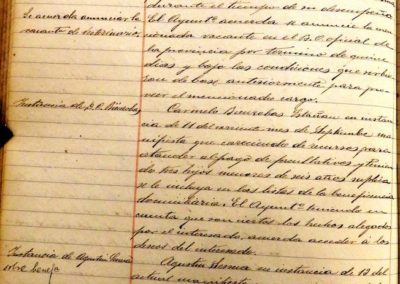 durante el tiempo de su desempeño
Se acuerda anunciar la
vacante de Veterinario.
El Ayunt.º acuerda se anuncie la men-
cionada vacante en el B.O. oficial de
la provincia por termino de quince
dias y bajo las condiciones que sirvie-
ron de base anteriormente para pro-
veer el mencionado cargo.
Instancia de D. C.
Carmelo en instan-
cia de 11 del corriente mes de Septiembre ma-
nifiesta que careciendo de recursos para
atender al pago de facultativos y tenien-
do tres hijos menores de seis años suplica
se le incluya en las listas de la beneficencia
domiciliaria. El Ayunt.º teniendo en
cuenta que son ciertos los hechos alegados
por el interesado, acuerda acceder a los
deseos del interesado.
Instancia de Agustin
sobre
Agustin en instancia de 12 del
actual manifiesta